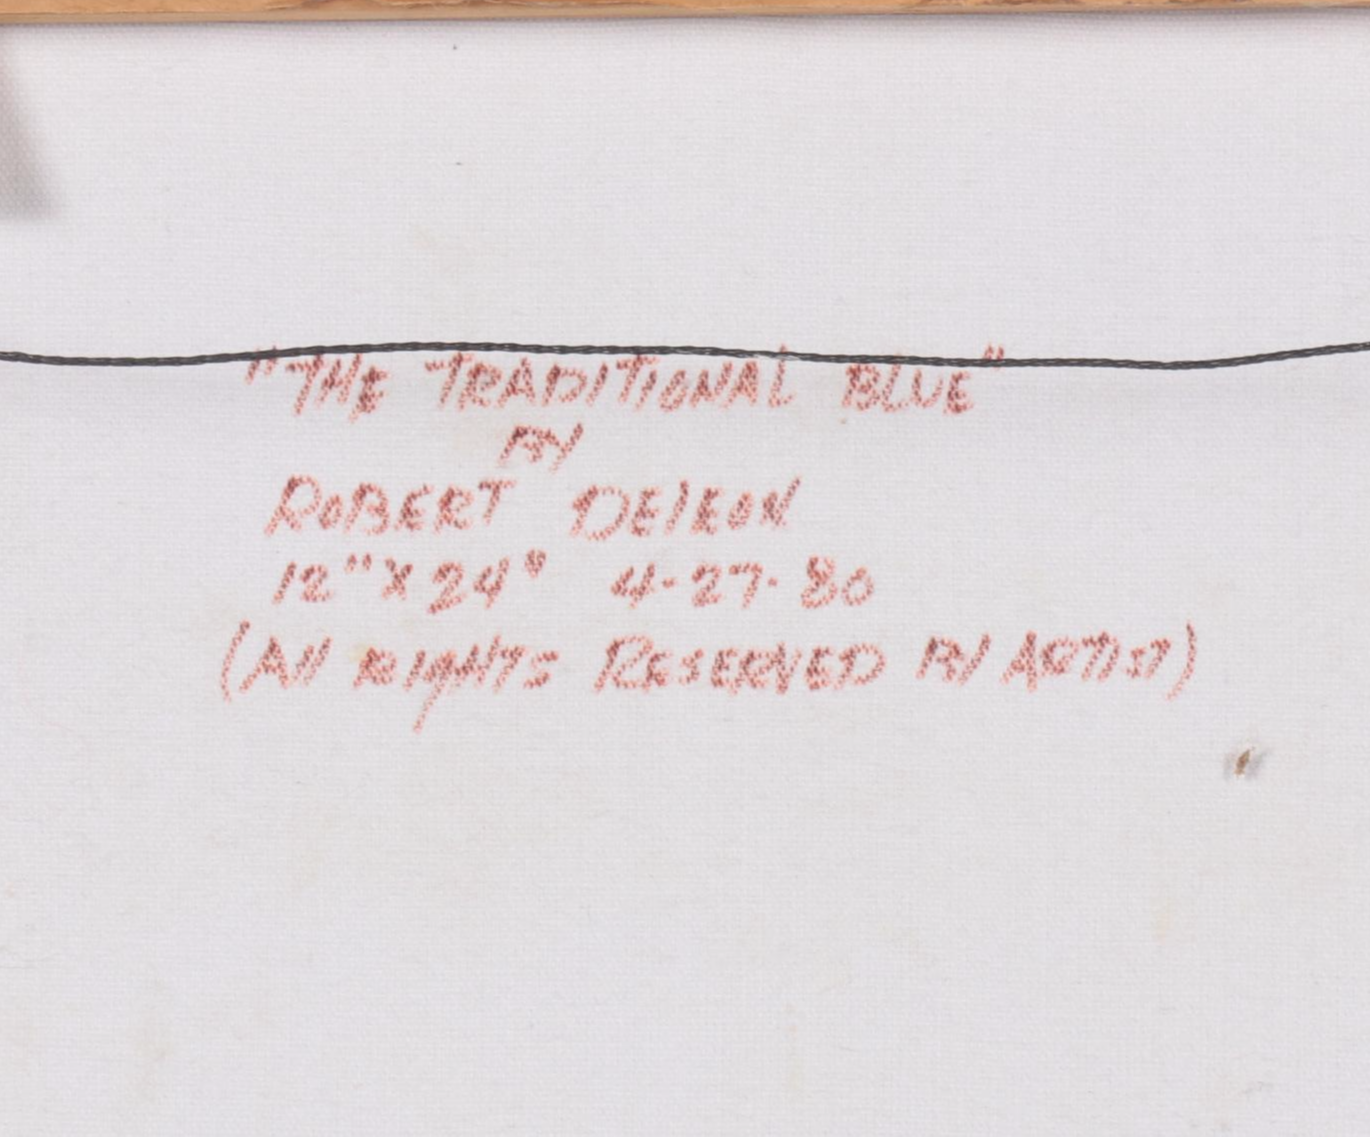 "THE TRADITIONAL BLUE"
BY
ROBERT DElEON
12"X24" 4-27-80
(All RIGHTS RESERVED BY ARTIST)